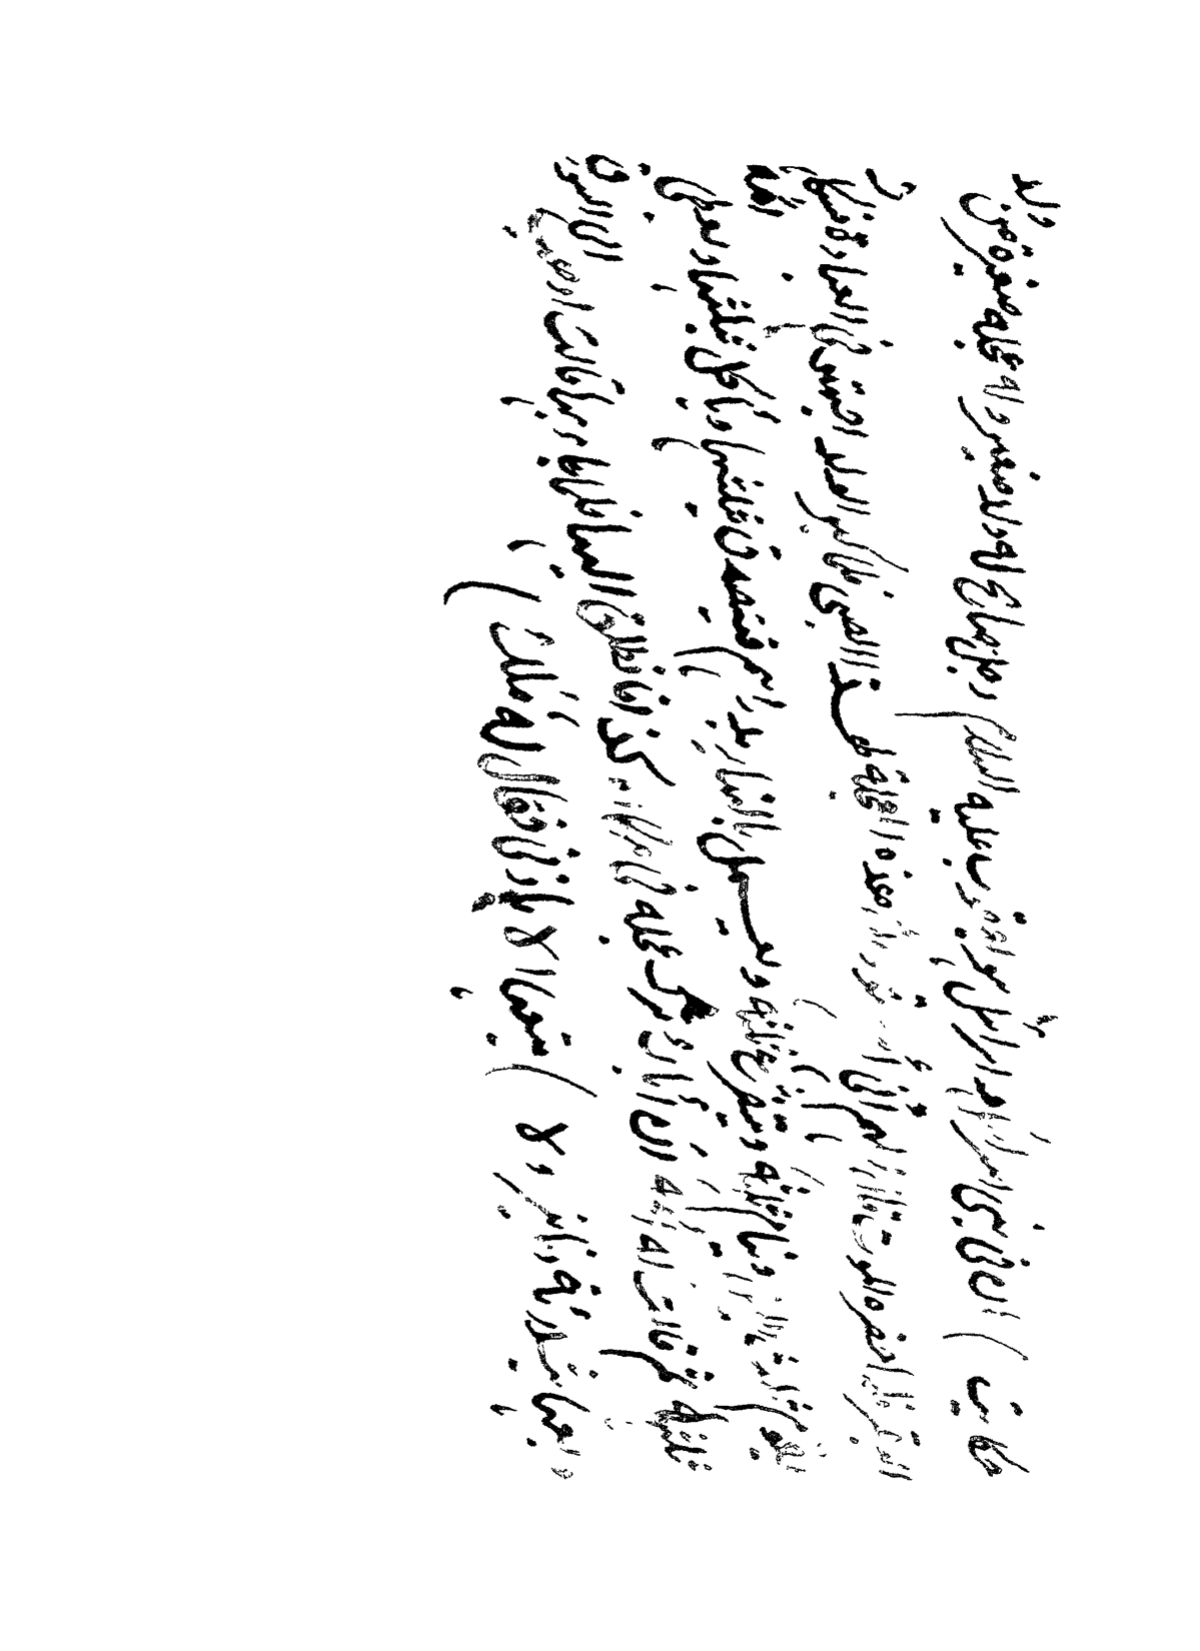 حكايت ) كان في بني اسرائيل اسرائيل هو يعقوب عليه السلام رجل صالح له ولد صغير وله عجلة صغيرة من ولد
البقر فلما احضره الموت قال اللهم اني هذه العجلة لهذا الصبي فلما كبر الولد اجتهد في العبادة فكان
يقوم وينام ثلثه ويتفرغ ثلثه ويعمل بالنهار بدراهم فيتصدق ثلثها وياكل ثلثها ويعطي امه
ثلثها ثم قالت له امه ان اباك ترك عجلة في مكان كذا فانطلق اليها فلما جاء بها قالت الى السوق
وبعها بثلاثة دنانير ولا ) تبعها الا باذني فقال له ملك )